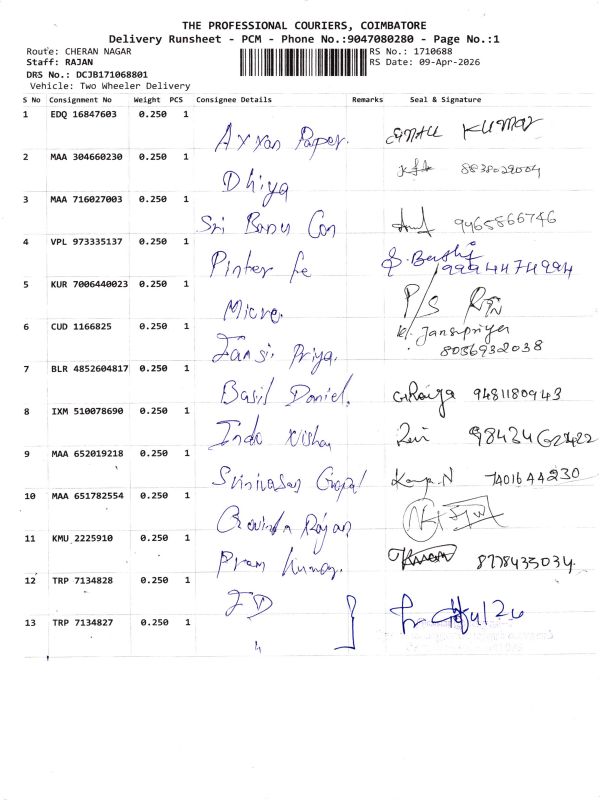 THE PROFESSIONAL COURIERS, COIMBATORE
Delivery Runsheet - PCM - Phone No.:9047080280 - Page No.:1
Route: CHERAN NAGAR RS No.: 1710688
Staff: RAJAN RS Date: 09-Apr-2026
DRS No.: DCJB171068801
Vehicle: Two Wheeler Delivery
S No Consignment No Weight PCS Consignee Details Remarks Seal & Signature
1 EDQ 16847603 0.250 1
Kumar
2 MAA 304660230 0.250 1
Dhiya
3 MAA 716027003 0.250 1
Sri Banu Con 9965866746
4 VPL 973335137 0.250 1
9994474994
5 KUR 7006440023 0.250 1
Micro. P/S
6 CUD 1166825 0.250 1
Jansi Priya. Jansipriya
8056932038
7 BLR 4852604817 0.250 1
Basil Daniel. 9481180943
8 IXM 510078690 0.250 1
9 MAA 652019218 0.250 1
Srinivasan Gopal 7401644230
10 MAA 651782554 0.250 1
Govinda Rajan
11 KMU 2225910 0.250 1
Prem Kumar. 8778435034
12 TRP 7134828 0.250 1
13 TRP 7134827 0.250 1